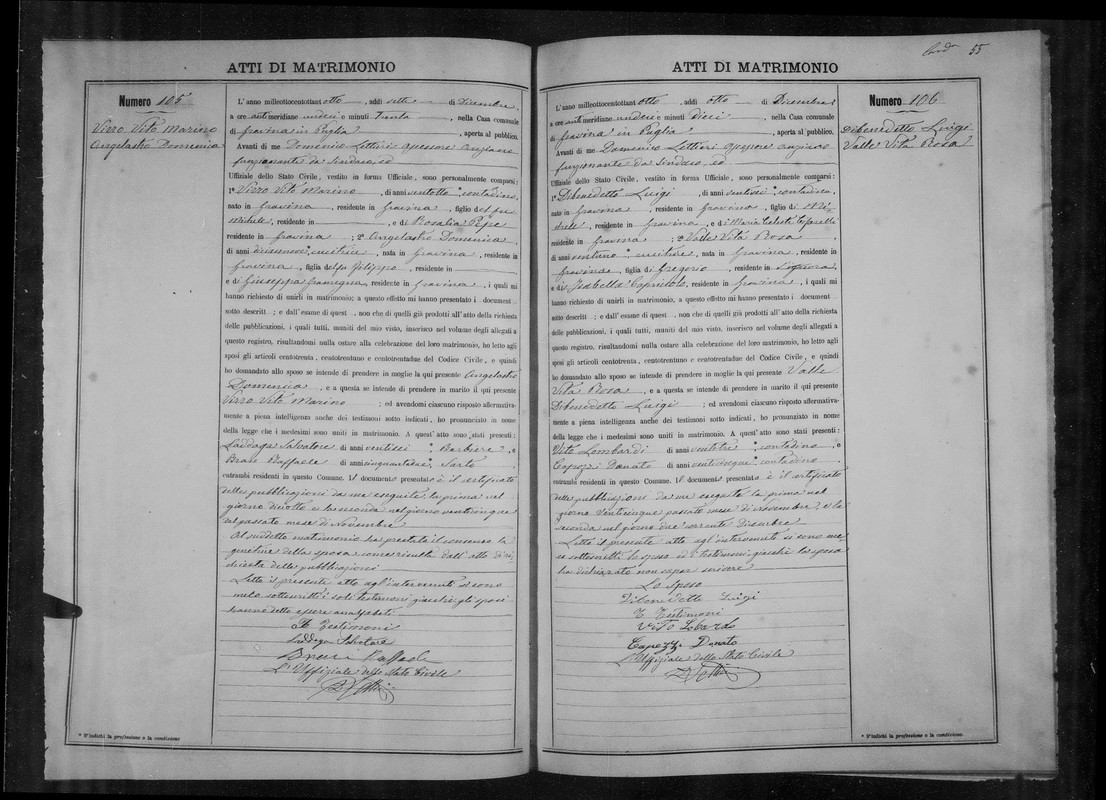 ATTI DI MATRIMONIO
Numero 105
Virro Vito Marino
Angelastro Domenica
L'anno milleottocentottant otto, addì sette di Dicembre,
a ore anti meridiane undici e minuti trenta, nella Casa comunale
di Gravina in Puglia, aperto al pubblico.
Avanti di me Domenico Lettieri Assessore anziano
funzionante da Sindaco, ed
Uffiziale dello Stato Civile, vestito in forma Uffiziale, sono personalmente comparsi:
1° Virro Vito Marino, di anni ventotto, * contadino,
nato in Gravina, residente in Gravina, figlio del fu
Michele, residente in, e di Rosalia Pepe
residente in Gravina; 2° Angelastro Domenica,
di anni diciannove * cucitrice, nata in Gravina, residente in
Gravina, figlia del fu Filippo, residente in
e di Giuseppa Gramegna, residente in Gravina, i quali mi
hanno richiesto di unirli in matrimonio; a questo effetto mi hanno presentato i document
sotto descritt; e dall'esame di quest, non che di quelli già prodotti all'atto della richiesta
delle pubblicazioni, i quali tutti, muniti del mio visto, inserisco nel volume degli allegati a
questo registro, risultandomi nulla ostare alla celebrazione del loro matrimonio, ho letto agli
sposi gli articoli centotrenta, centotrentuno e centotrentadue del Codice Civile, e quindi
ho domandato allo sposo se intende di prendere in moglie la qui presente Angelastro
Domenica, e a questa se intende di prendere in marito il qui presente
Virro Vito Marino; ed avendomi ciascuno risposto affermativa-
mente a piena intelligenza anche dei testimoni sotto indicati, ho pronunziato in nome
della legge che i medesimi sono uniti in matrimonio. A quest'atto sono stati presenti:
Laddaga Salvatore di anni ventisei * Barbiere, e
Raffaele di anni cinquantasei *, Sarto,
entrambi residenti in questo Comune. Il document presentato è il certificato
delle pubblicazioni da me eseguite, la prima nel
giorno diciotto e la seconda nel giorno venticinque
del passato mese di Novembre
Al suddetto matrimonio ha prestato il consenso la
genitrice della sposa come risulta dall'atto di ri-
chiesta delle pubblicazioni
Letto il presente atto agl'intervenuti si sono
meco sottoscritti i soli testimoni giacchè gli sposi
hanno detto essere analfabeti
I Testimoni
Laddaga Salvatore
Raffaele
L'Uffiziale dello Stato Civile
* S'indichi la professione o la condizione
55
ATTI DI MATRIMONIO
Numero 106
Dibenedetto Luigi
Valle Vita Rosa
L'anno milleottocentottant otto, addì otto di Dicembre
a ore anti meridiane undici e minuti dieci, nella Casa comunale
di Gravina in Puglia, aperta al pubblico.
Avanti di me Domenico Lettieri Assessore anziano
funzionante da Sindaco, ed
Uffiziale dello Stato Civile, vestito in forma Uffiziale, sono personalmente comparsi:
1° Dibenedetto Luigi, di anni ventisei * contadino,
nato in Gravina, residente in Gravina, figlio di Mi-
chele, residente in Gravina, e di Maria Celeste
residente in Gravina; 2° Valle Vita Rosa,
di anni ventuno * cucitrice, nata in Gravina, residente in
Gravina, figlia di Gregorio, residente in
e di Isabella Capritolo, residente in Gravina, i quali mi
hanno richiesto di unirli in matrimonio; a questo effetto mi hanno presentato i document
sotto descritt; e dall'esame di quest, non che di quelli già prodotti all'atto della richiesta
delle pubblicazioni, i quali tutti, muniti del mio visto, inserisco nel volume degli allegati a
questo registro, risultandomi nulla ostare alla celebrazione del loro matrimonio, ho letto agli
sposi gli articoli centotrenta, centotrentuno e centotrentadue del Codice Civile, e quindi
ho domandato allo sposo se intende di prendere in moglie la qui presente Valle
Vita Rosa, e a questa se intende di prendere in marito il qui presente
Dibenedetto Luigi; ed avendomi ciascuno risposto affermativa-
mente a piena intelligenza anche dei testimoni sotto indicati, ho pronunziato in nome
della legge che i medesimi sono uniti in matrimonio. A quest'atto sono stati presenti:
Vito Lombardi di anni ventitre * contadino, e
Capozzi Donato di anni venticinque * contadino,
entrambi residenti in questo Comune. Il document presentato è il certificato
delle pubblicazioni da me eseguite la prima nel
giorno venticinque passato mese di Novembre, e la
seconda nel giorno due corrente Dicembre
Letto il presente atto agl'intervenuti si sono me-
co sottoscritti lo sposo ed i testimoni, giacchè la sposa
ha dichiarato non saper scrivere
Lo Sposo
Dibenedetto Luigi
I Testimoni
Vito
Capozzi Donato
L'Uffiziale dello Stato Civile
* S'indichi la professione o la condizione